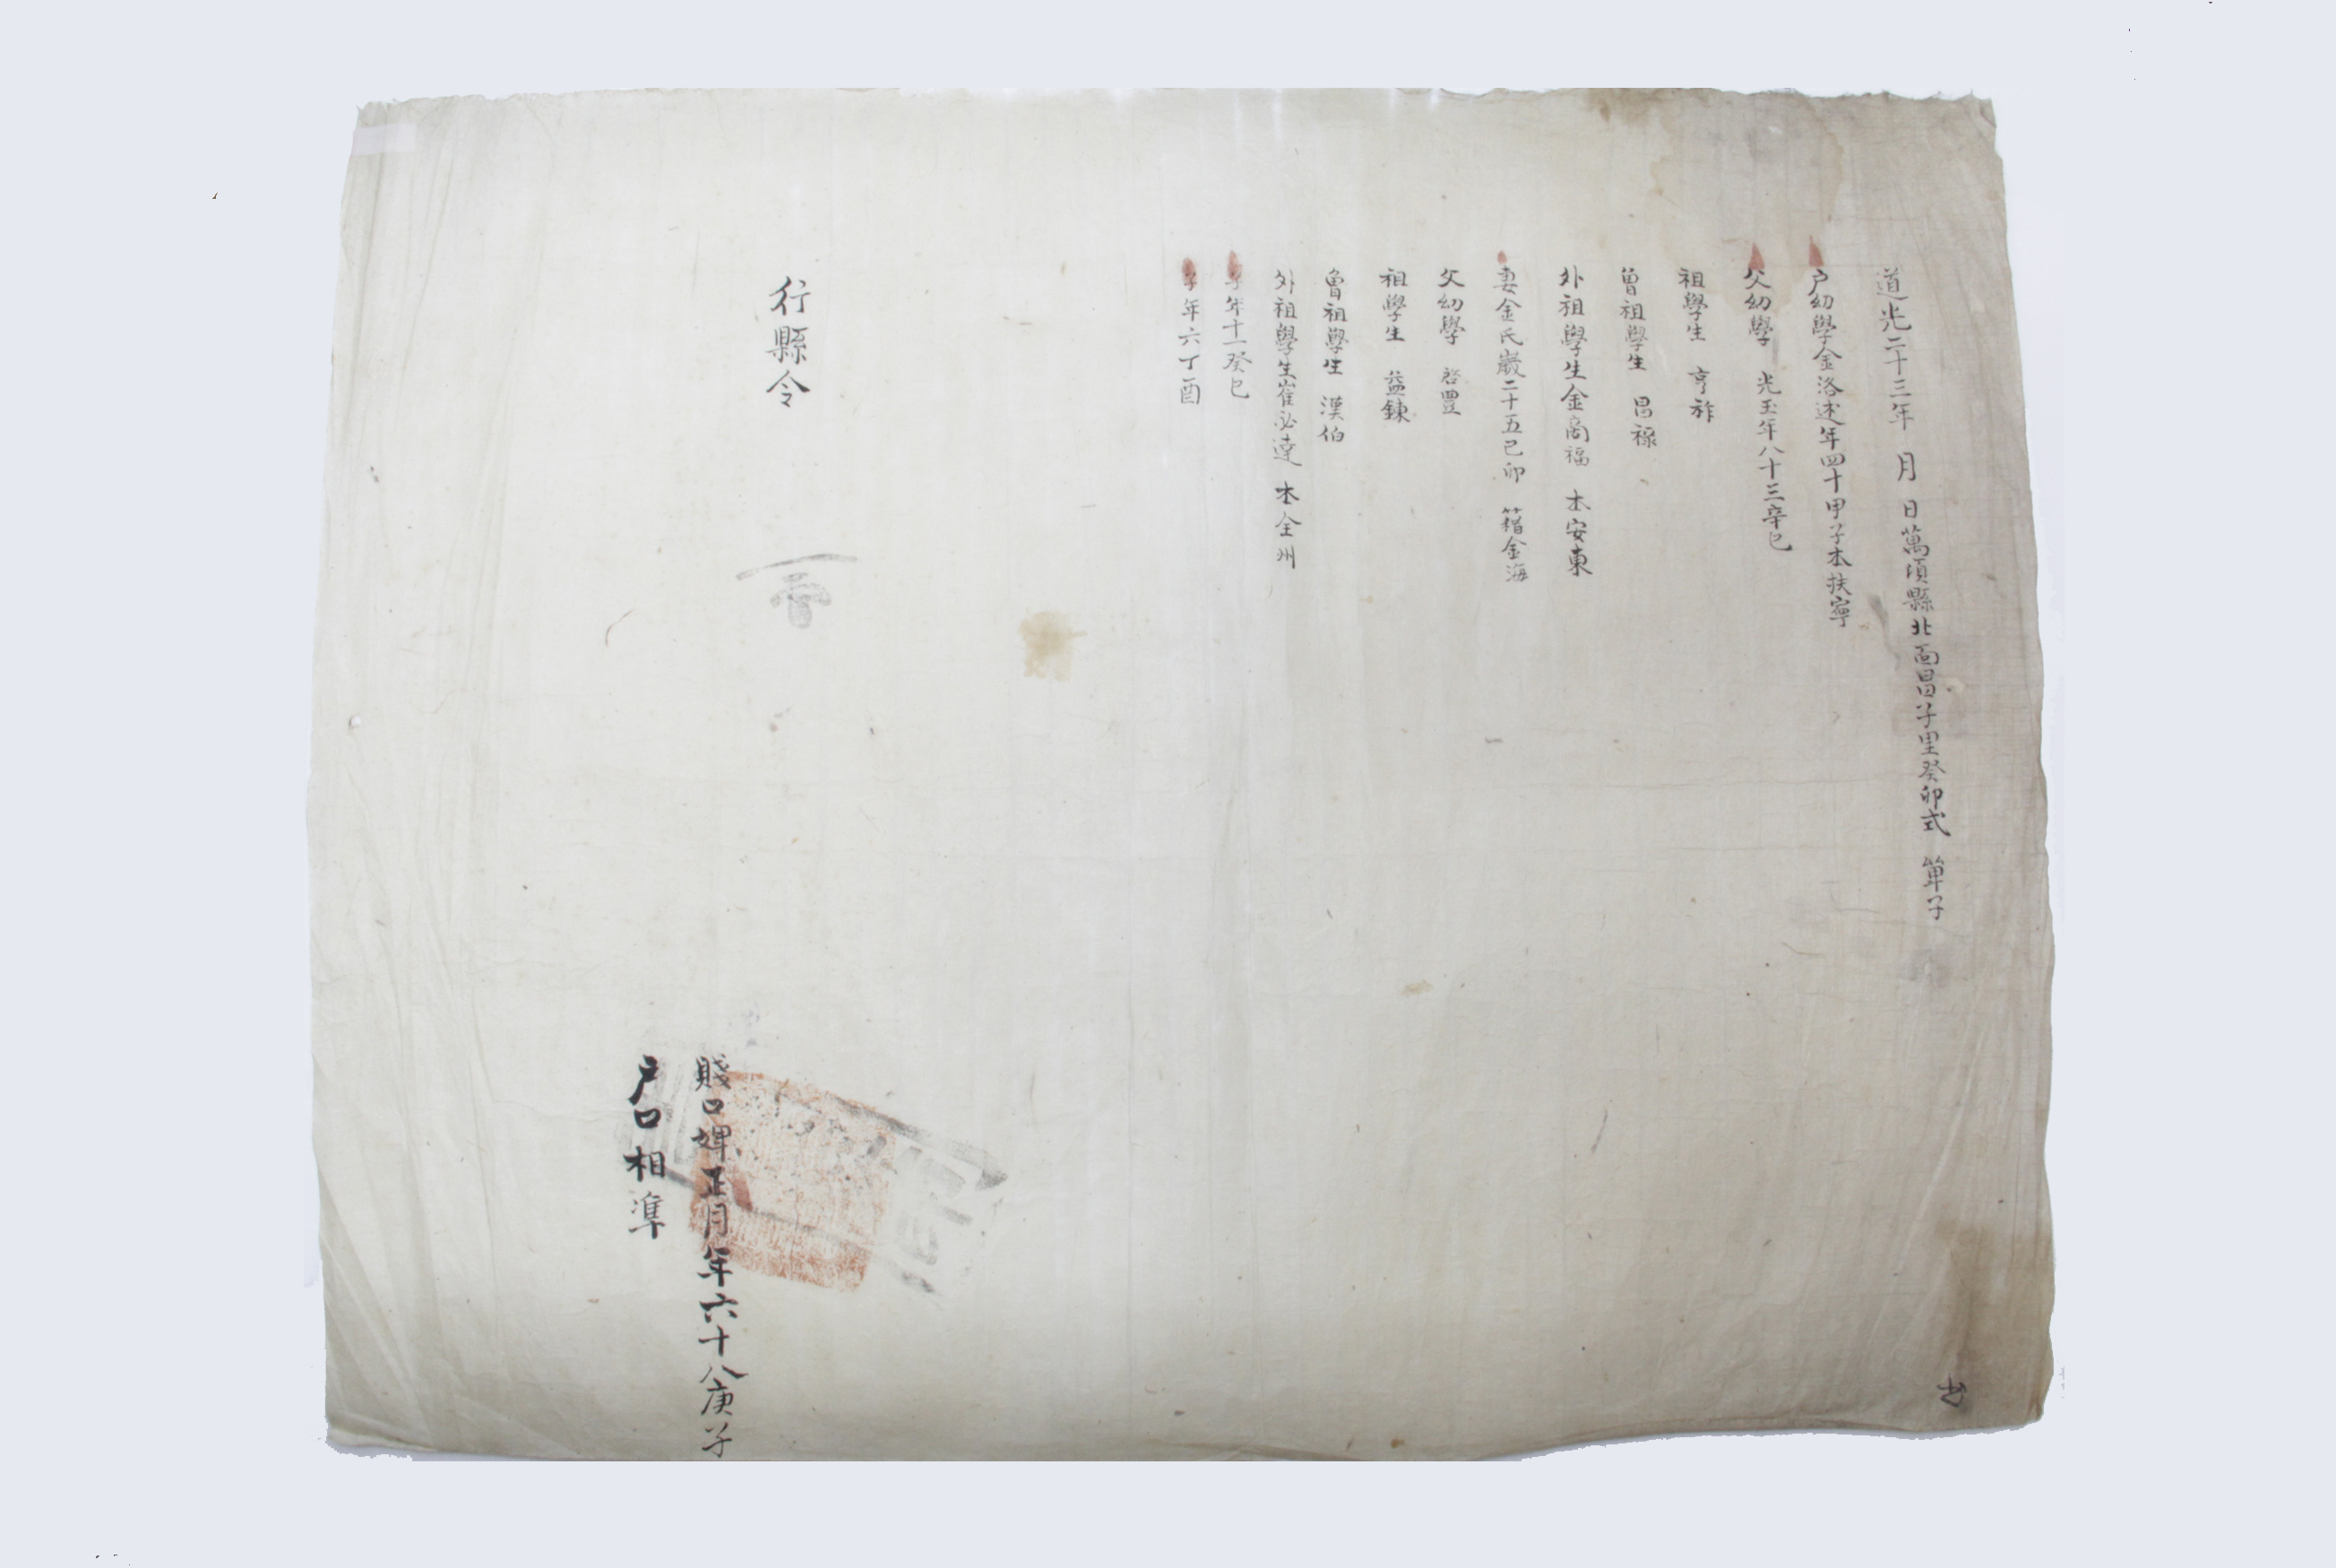 道光二十三年 月 日萬頃縣北面昌子里癸卯式 單子
戶幼學金洛述年四十甲子本扶寧
父幼學 光玉年八十三辛巳
祖學生 亨祚
曾祖學生 昌祿
外祖學生金尙福 本安東
妻金氏歲二十五己卯 籍金海
父幼學 啓豊
祖學生 益鍊
曾祖學生 漢伯
外祖學生崔必達 本全州
子年十一癸巳
子年六丁酉
行縣令
賤口婢正月年六十八庚子
戶口相準